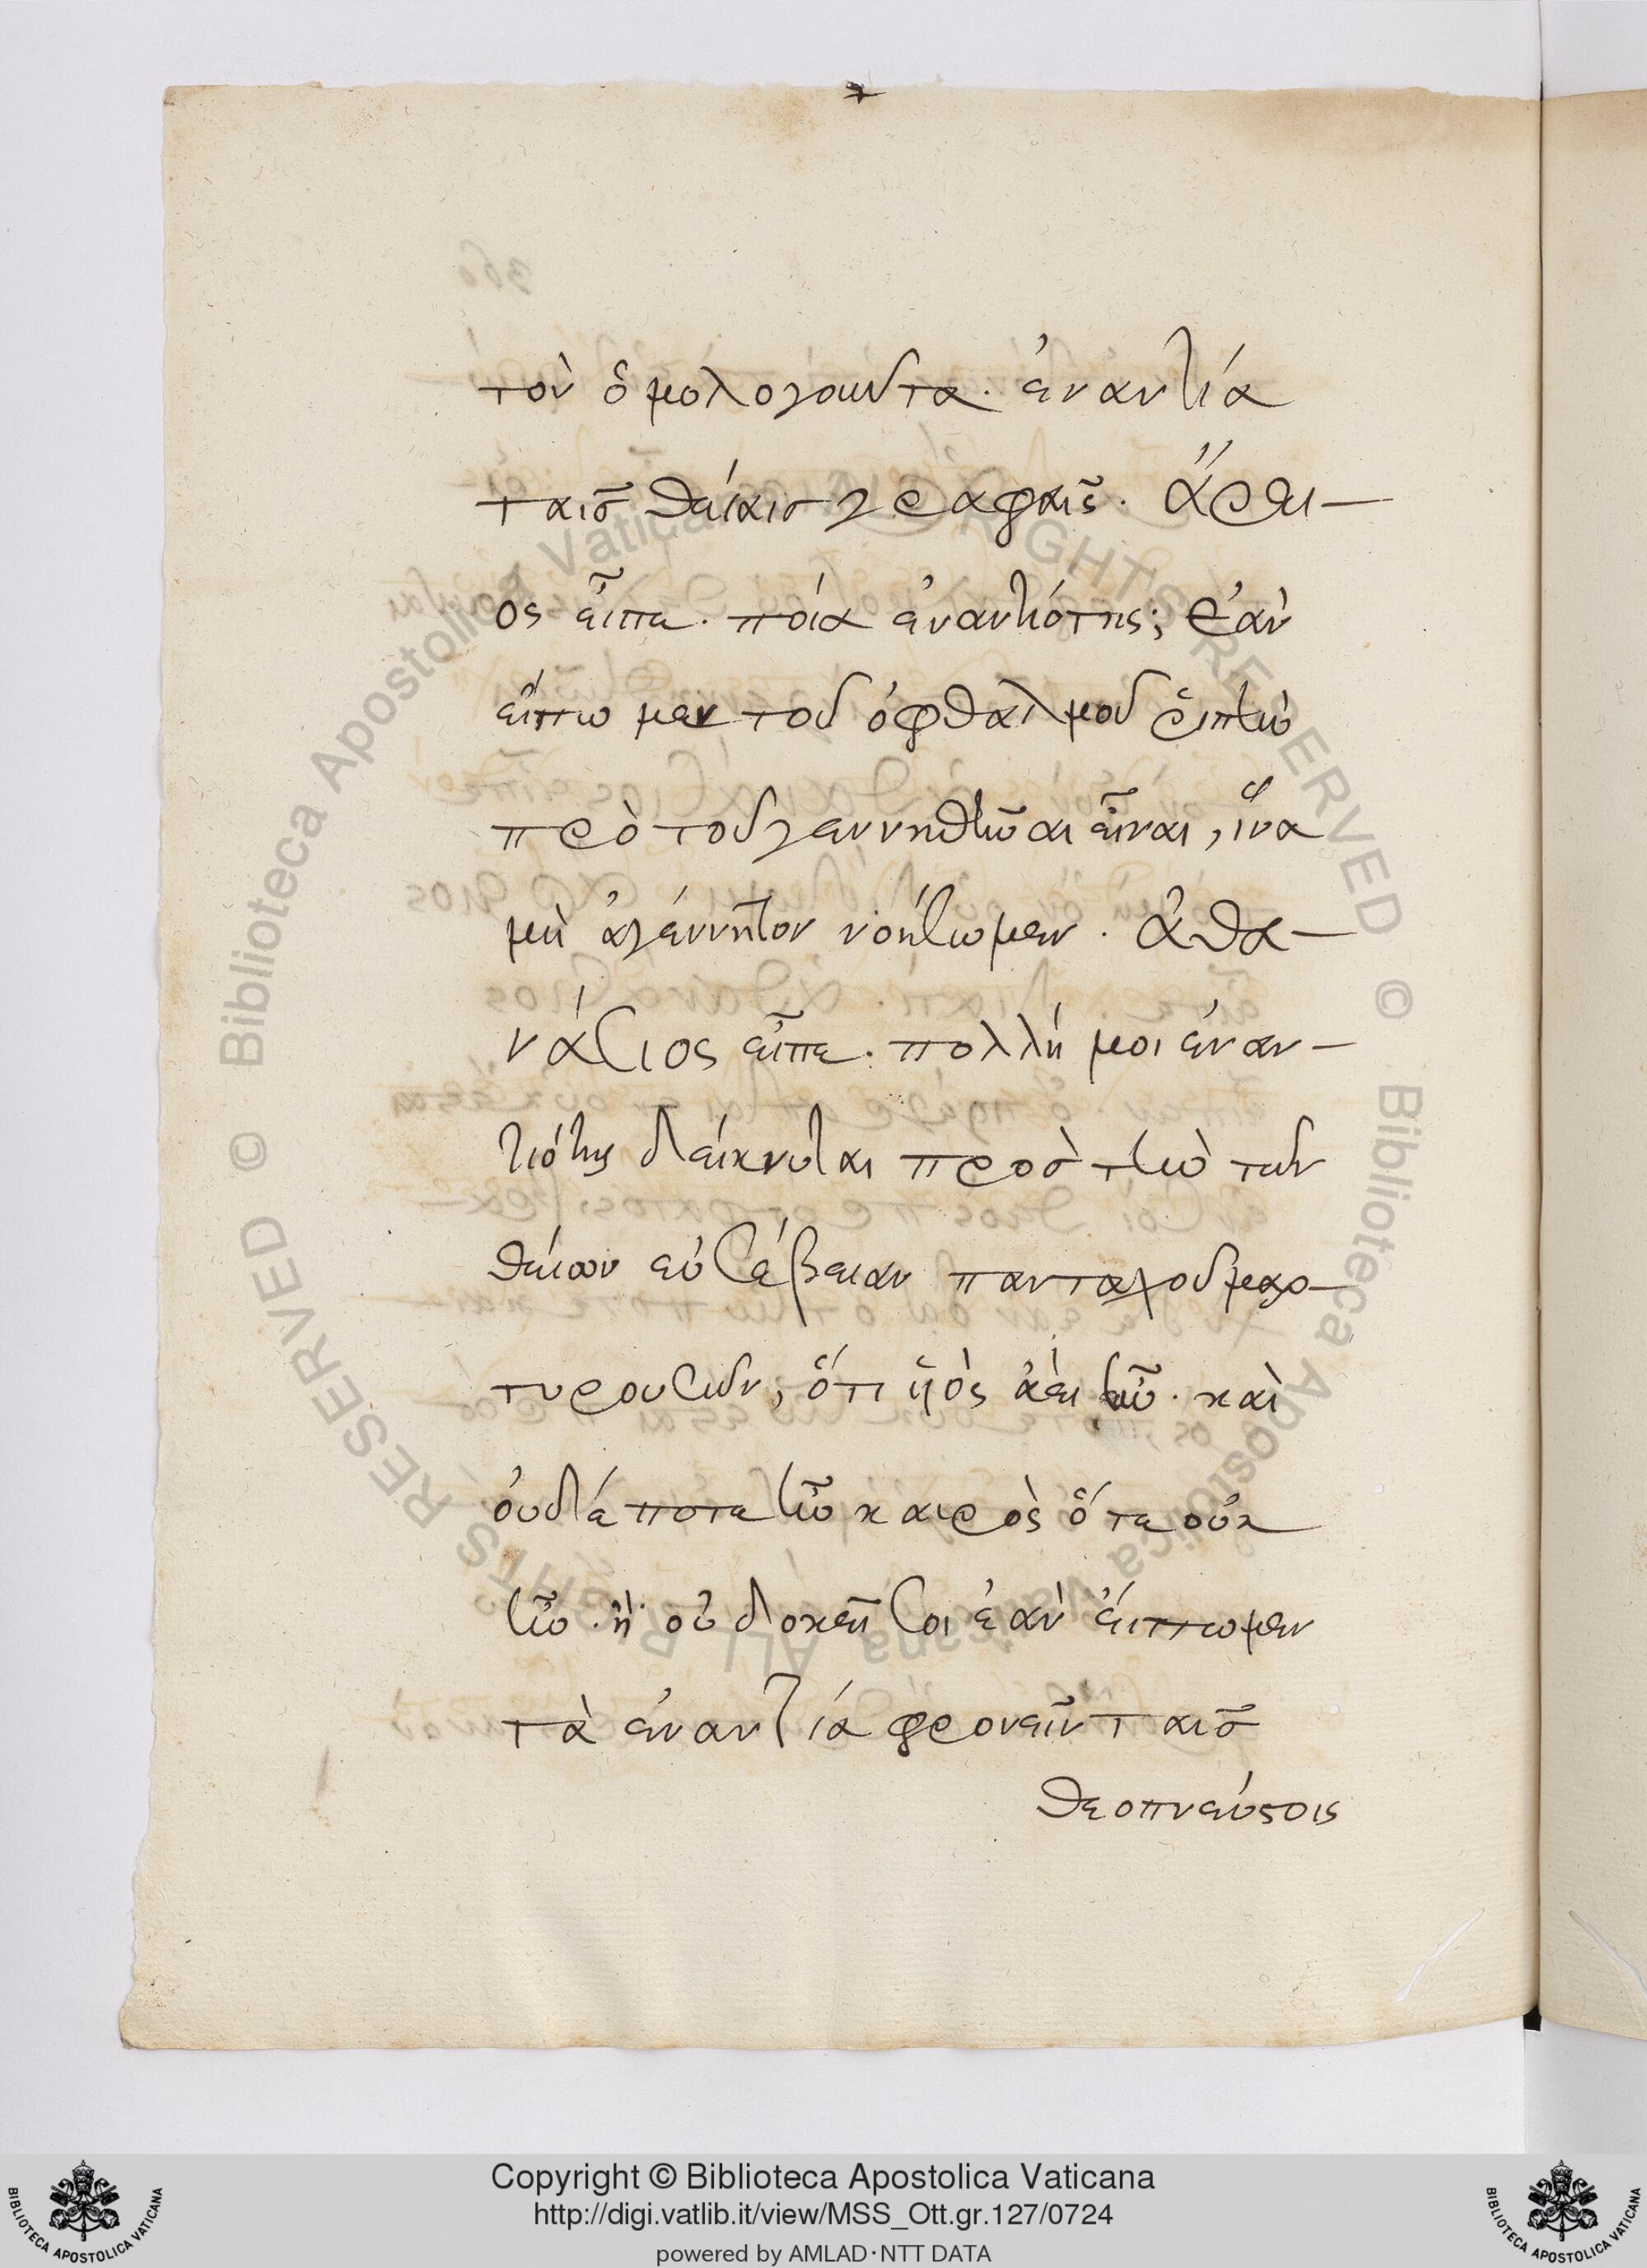 τὸν ὁμολογοῦντα. ἐναντία
ταῖς θείαις γραφαῖς. ἄρει-
ος εἶπε. ποία ἐναντιότης; ἐὰν
εἴπω μεν τοῦ ὀφθαλμοῦ ῥιπὴν
πρὸ τοῦ γεννηθῆναι εἶναι, ἵνα
μὴ ἀγέννητον νοήσωμεν. ἀθα-
νάσιος εἶπε. πολλή μοι ἐναν-
τιότης δείκνυται πρὸς τὴν τῶν
θείων εὐσέβειαν πανταχοῦ μαρ-
τυρουσῶν, ὅτι υἱὸς ἀεὶ ἦν. καὶ
οὐδέποτε ἦν καιρὸς ὅτε οὐκ
ἦν. ἢ οὐ δοκεῖ σοι ἐὰν εἴπωμεν
τὰ ἐναντία φρονεῖν ταῖς
θεοπνεύστοις
Copyright © Biblioteca Apostolica Vaticana
http://digi.vatlib.it/view/MSS_Ott.gr.127/0724
powered by AMLAD·NTT DATA
BIBLIOTECA APOSTOLICA VATICANA
BIBLIOTECA APOSTOLICA VATICANA
© Biblioteca Apostolica Vaticana ALL RIGHTS RESERVED
© Biblioteca Apostolica Vaticana ALL RIGHTS RESERVED